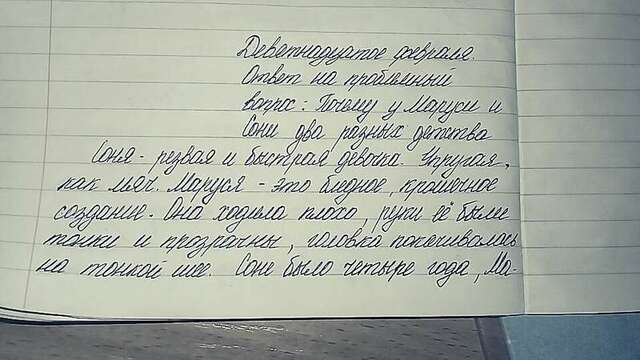 Девятнадцатое февраля.
Ответ на проблемный
вопрос: Почему у Маруси и
Сони два разных детства
Соня - резвая и быстрая девочка. Упругая,
как мяч. Маруся - это бледное, крошечное
создание. Она ходила плохо, руки её были
тонки и прозрачны, головка покачивалась
на тонкой шее. Соне было четыре года, Ма-